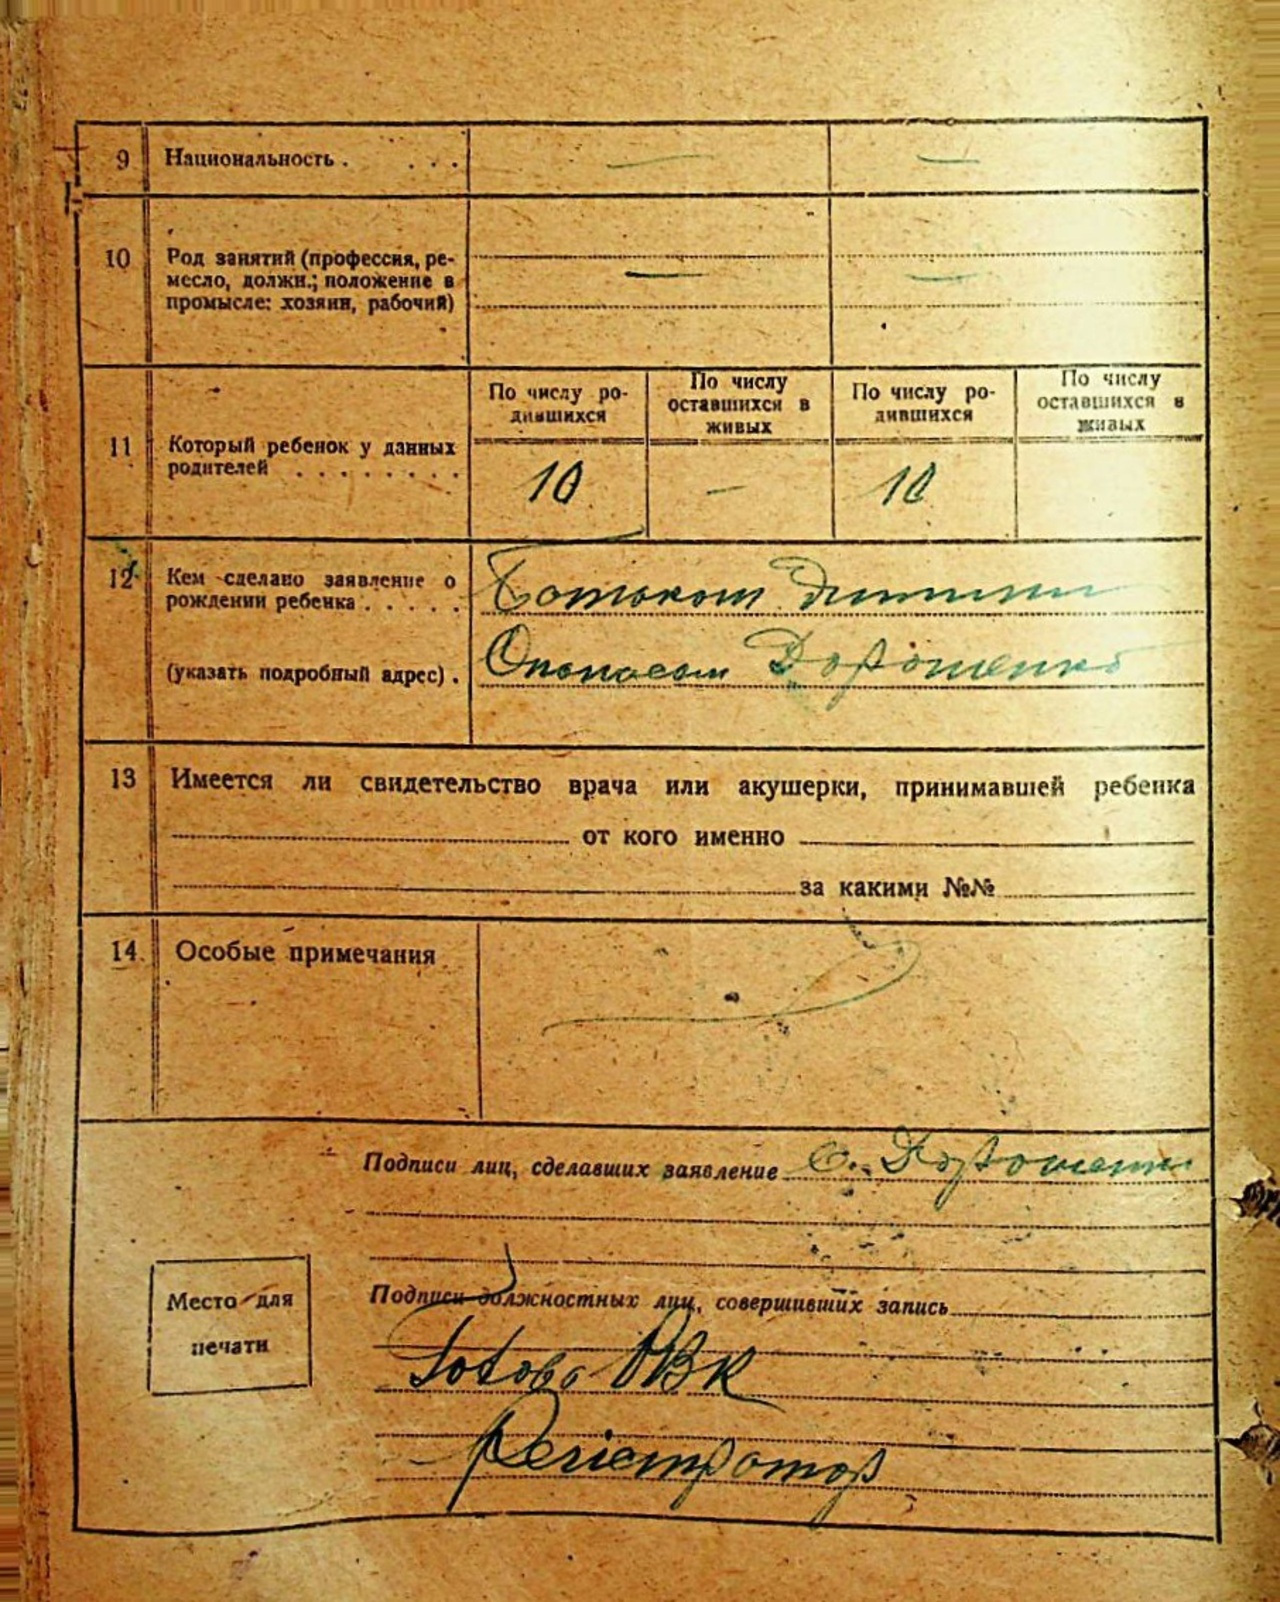 9 Национальность . . . . — —
10 Род занятий (профессия, ре-
месло, должн.; положение в — —
промысле: хозяин, рабочий)
По числу ро-
дившихся
По числу
оставшихся в
живых
По числу ро-
дившихся
По числу
оставшихся в
живых
11 Который ребенок у данных
родителей . . . . . . . .
10 — 10
12 Кем сделано заявление о
рождении ребенка . . . . .
Батьком дитини
(указать подробный адрес) .
Опанасом Дорошенко
13 Имеется ли свидетельство врача или акушерки, принимавшей ребенка
от кого именно
за какими №№
14. Особые примечания
Подписи лиц, сделавших заявление О. Дорошенко
Место для
печати
Подписи должностных лиц, совершивших запись
Голова РВК
Регістратор